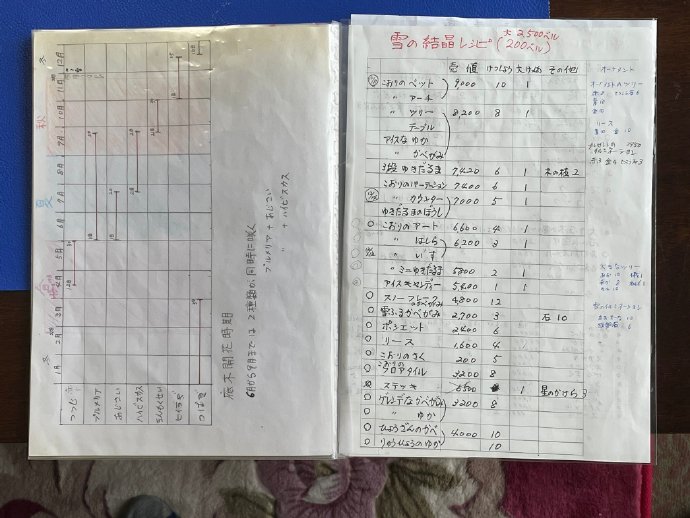 冬
12月
11月
10月
秋
9月
8月
夏
7月
6月
5月
4月
3月
2月
冬
1月
つつじ
プルメリア
あじさい
ハイビスカス
きんもくせい
つばき
庭木開花時期
6月から9月までは2種類が同時に咲く
プルメリア + あじさい
〃 + ハイビスカス
雪の結晶レシピ
大 2,500ベル
(200ベル)
売値 けっしょう 大けっしょう その他
こおりのベット 9,000 10 1
〃 アーチ
〃 ツリー 8,200 8 1
テーブル
アイスなゆか
〃 かべがみ
3段ゆきだるま 7,420 6 1 木の枝 2
こおりのパーテーション 7,400 6 1
〃 カウンター 7,000 5 1
ゆきだるまのぼうし
こおりのアート 6,600 4 1
〃 はしら 6,200 3 1
〃 いす
〃 ミニゆきだるま 5800 2 1
アイスキャンディー 5,400 1 1
スノーフレークのかべがみ 4,800 12
雪ふるかべがみ 2,700 3 石 10
ポシェット 2400 6
リース 1,600 4
こおりのさく 200 5
こおりの
フロアタイル 3,200 8
ステッキ 6500 1 星のかけら 3
ゲレンデなかべがみ 3,200 8
〃 ゆか
ひょうざんのかべ 4,000 10
りゅうひょうのゆか 10
オーナメント
オーナメントのツリー
リース
大きなツリー